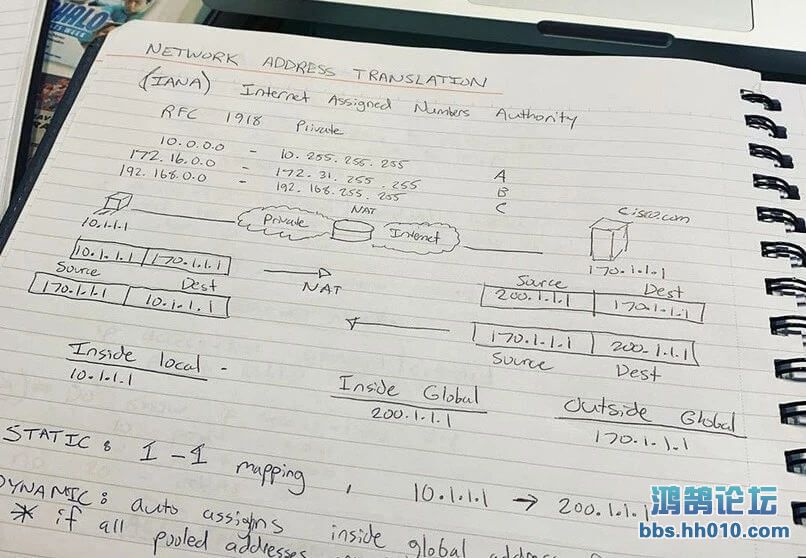 NETWORK ADDRESS TRANSLATION
(IANA) Internet Assigned Numbers Authority
RFC 1918 Private
10.0.0.0 - 10.255.255.255 A
172.16.0.0 - 172.31.255.255 B
192.168.0.0 - 192.168.255.255 C
NAT
Private
Internet
10.1.1.1
170.1.1.1
10.1.1.1 170.1.1.1
Source Dest
170.1.1.1 10.1.1.1
NAT
Source Dest
200.1.1.1 170.1.1.1
170.1.1.1 200.1.1.1
Source Dest
Inside local -
10.1.1.1
Inside Global
200.1.1.1
Outside Global
170.1.1.1
STATIC: 1-1 mapping, 10.1.1.1 → 200.1.1.1
DYNAMIC: auto assigns inside global
* if all pooled addresses
鸿鹄论坛
bbs.hh010.com